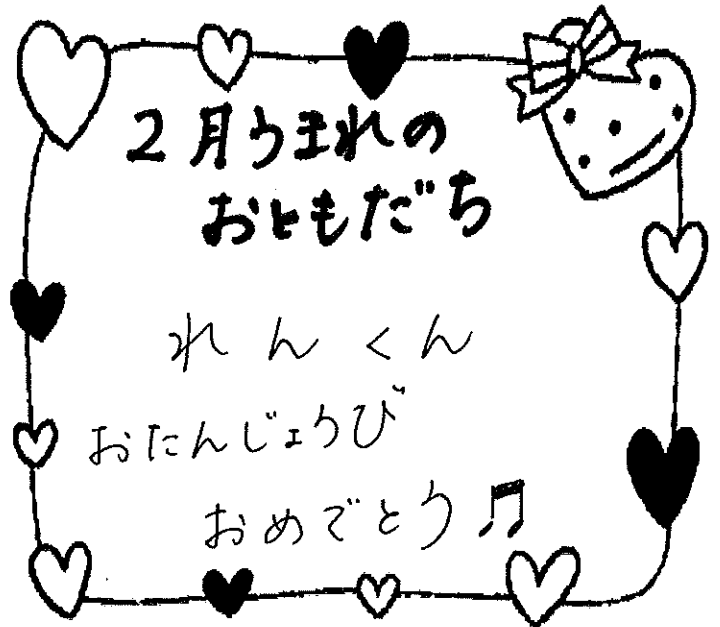 2月うまれの
おともだち
れんくん
おたんじょうび
おめでとう♫